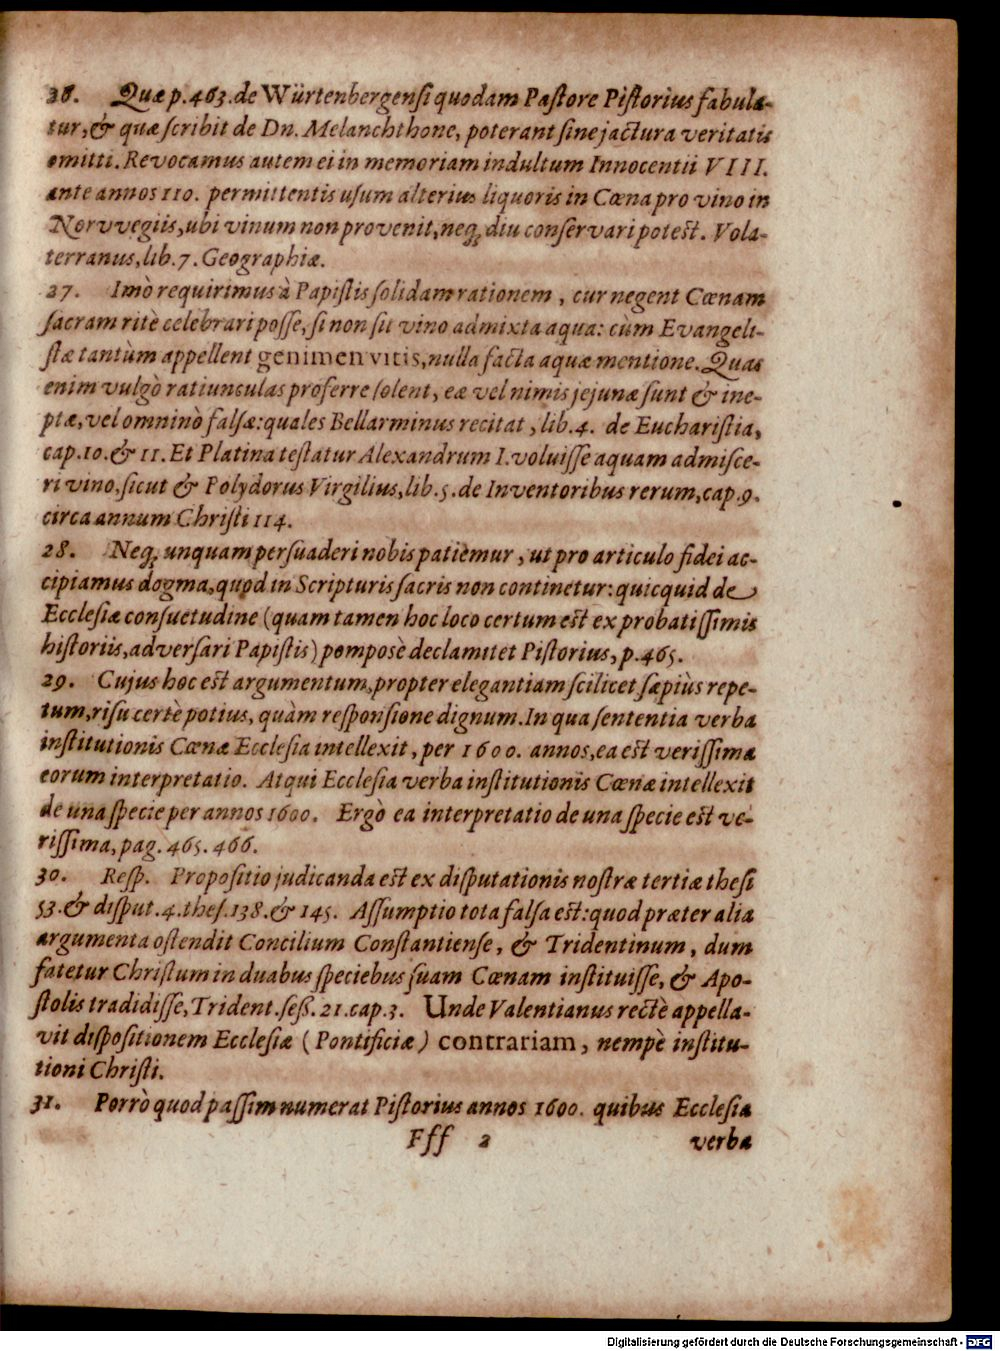 38. Quæ p. 463. de Würtenbergensi quodam Pastore Pistorius fabula-
tur, & quæ scribit de Dn. Melanchthone, poterant sine jactura veritatis
omitti. Revocamus autem ei in memoriam indultum Innocentii VIII.
ante annos 110. permittentis usum alterius liquoris in Cœna pro vino in
Norvvegiis, ubi vinum non provenit, neq; diu conservari potest. Vola-
terranus, lib. 7. Geographiæ.
27. Imò requirimus à Papistis solidam rationem, cur negent Cœnam
sacram ritè celebrari posse, si non sit vino admixta aqua: cùm Evangeli-
stæ tantùm appellent genimen vitis, nulla facta aquæ mentione. Quas
enim vulgò ratiunculas proferre solent, eæ vel nimis jejunæ sunt & ine-
ptæ, vel omninò falsæ: quales Bellarminus recitat, lib. 4. de Eucharistia,
cap. 10. & 11. Et Platina testatur Alexandrum I. voluisse aquam admisce-
ri vino, sicut & Polydorus Virgilius, lib. 5. de Inventoribus rerum, cap. 9.
circa annum Christi 114.
28. Neq; unquam persuaderi nobis patiemur, ut pro articulo fidei ac-
cipiamus dogma, quod in Scripturis sacris non continetur: quicquid de
Ecclesiæ consuetudine (quam tamen hoc loco certum est ex probatissimis
historiis, adversari Papistis) pomposè declamitet Pistorius, p. 465.
29. Cujus hoc est argumentum, propter elegantiam scilicet sæpiùs repe-
tum, risu certè potius, quàm responsione dignum. In qua sententia verba
institutionis Cœnæ Ecclesia intellexit, per 1600. annos, ea est verissima
eorum interpretatio. Atqui Ecclesia verba institutionis Cœnæ intellexit
de una specie per annos 1600. Ergò ea interpretatio de una specie est ve-
rissima, pag. 465. 466.
30. Resp. Propositio judicanda est ex disputationis nostræ tertiæ thesi
53. & disput. 4. thes. 138. & 145. Assumptio tota falsa est: quod præter alia
argumenta ostendit Concilium Constantiense, & Tridentinum, dum
fatetur Christum in duabus speciebus suam Cœnam instituisse, & Apo-
stolis tradidisse, Trident. seß. 21. cap. 3. Unde Valentianus rectè appella-
vit dispositionem Ecclesiæ (Pontificiæ) contrariam, nempè institu-
tioni Christi.
31. Porrò quod passim numerat Pistorius annos 1600. quibus Ecclesia
Fff 2 verba
Digitalisierung gefördert durch die Deutsche Forschungsgemeinschaft - DFG